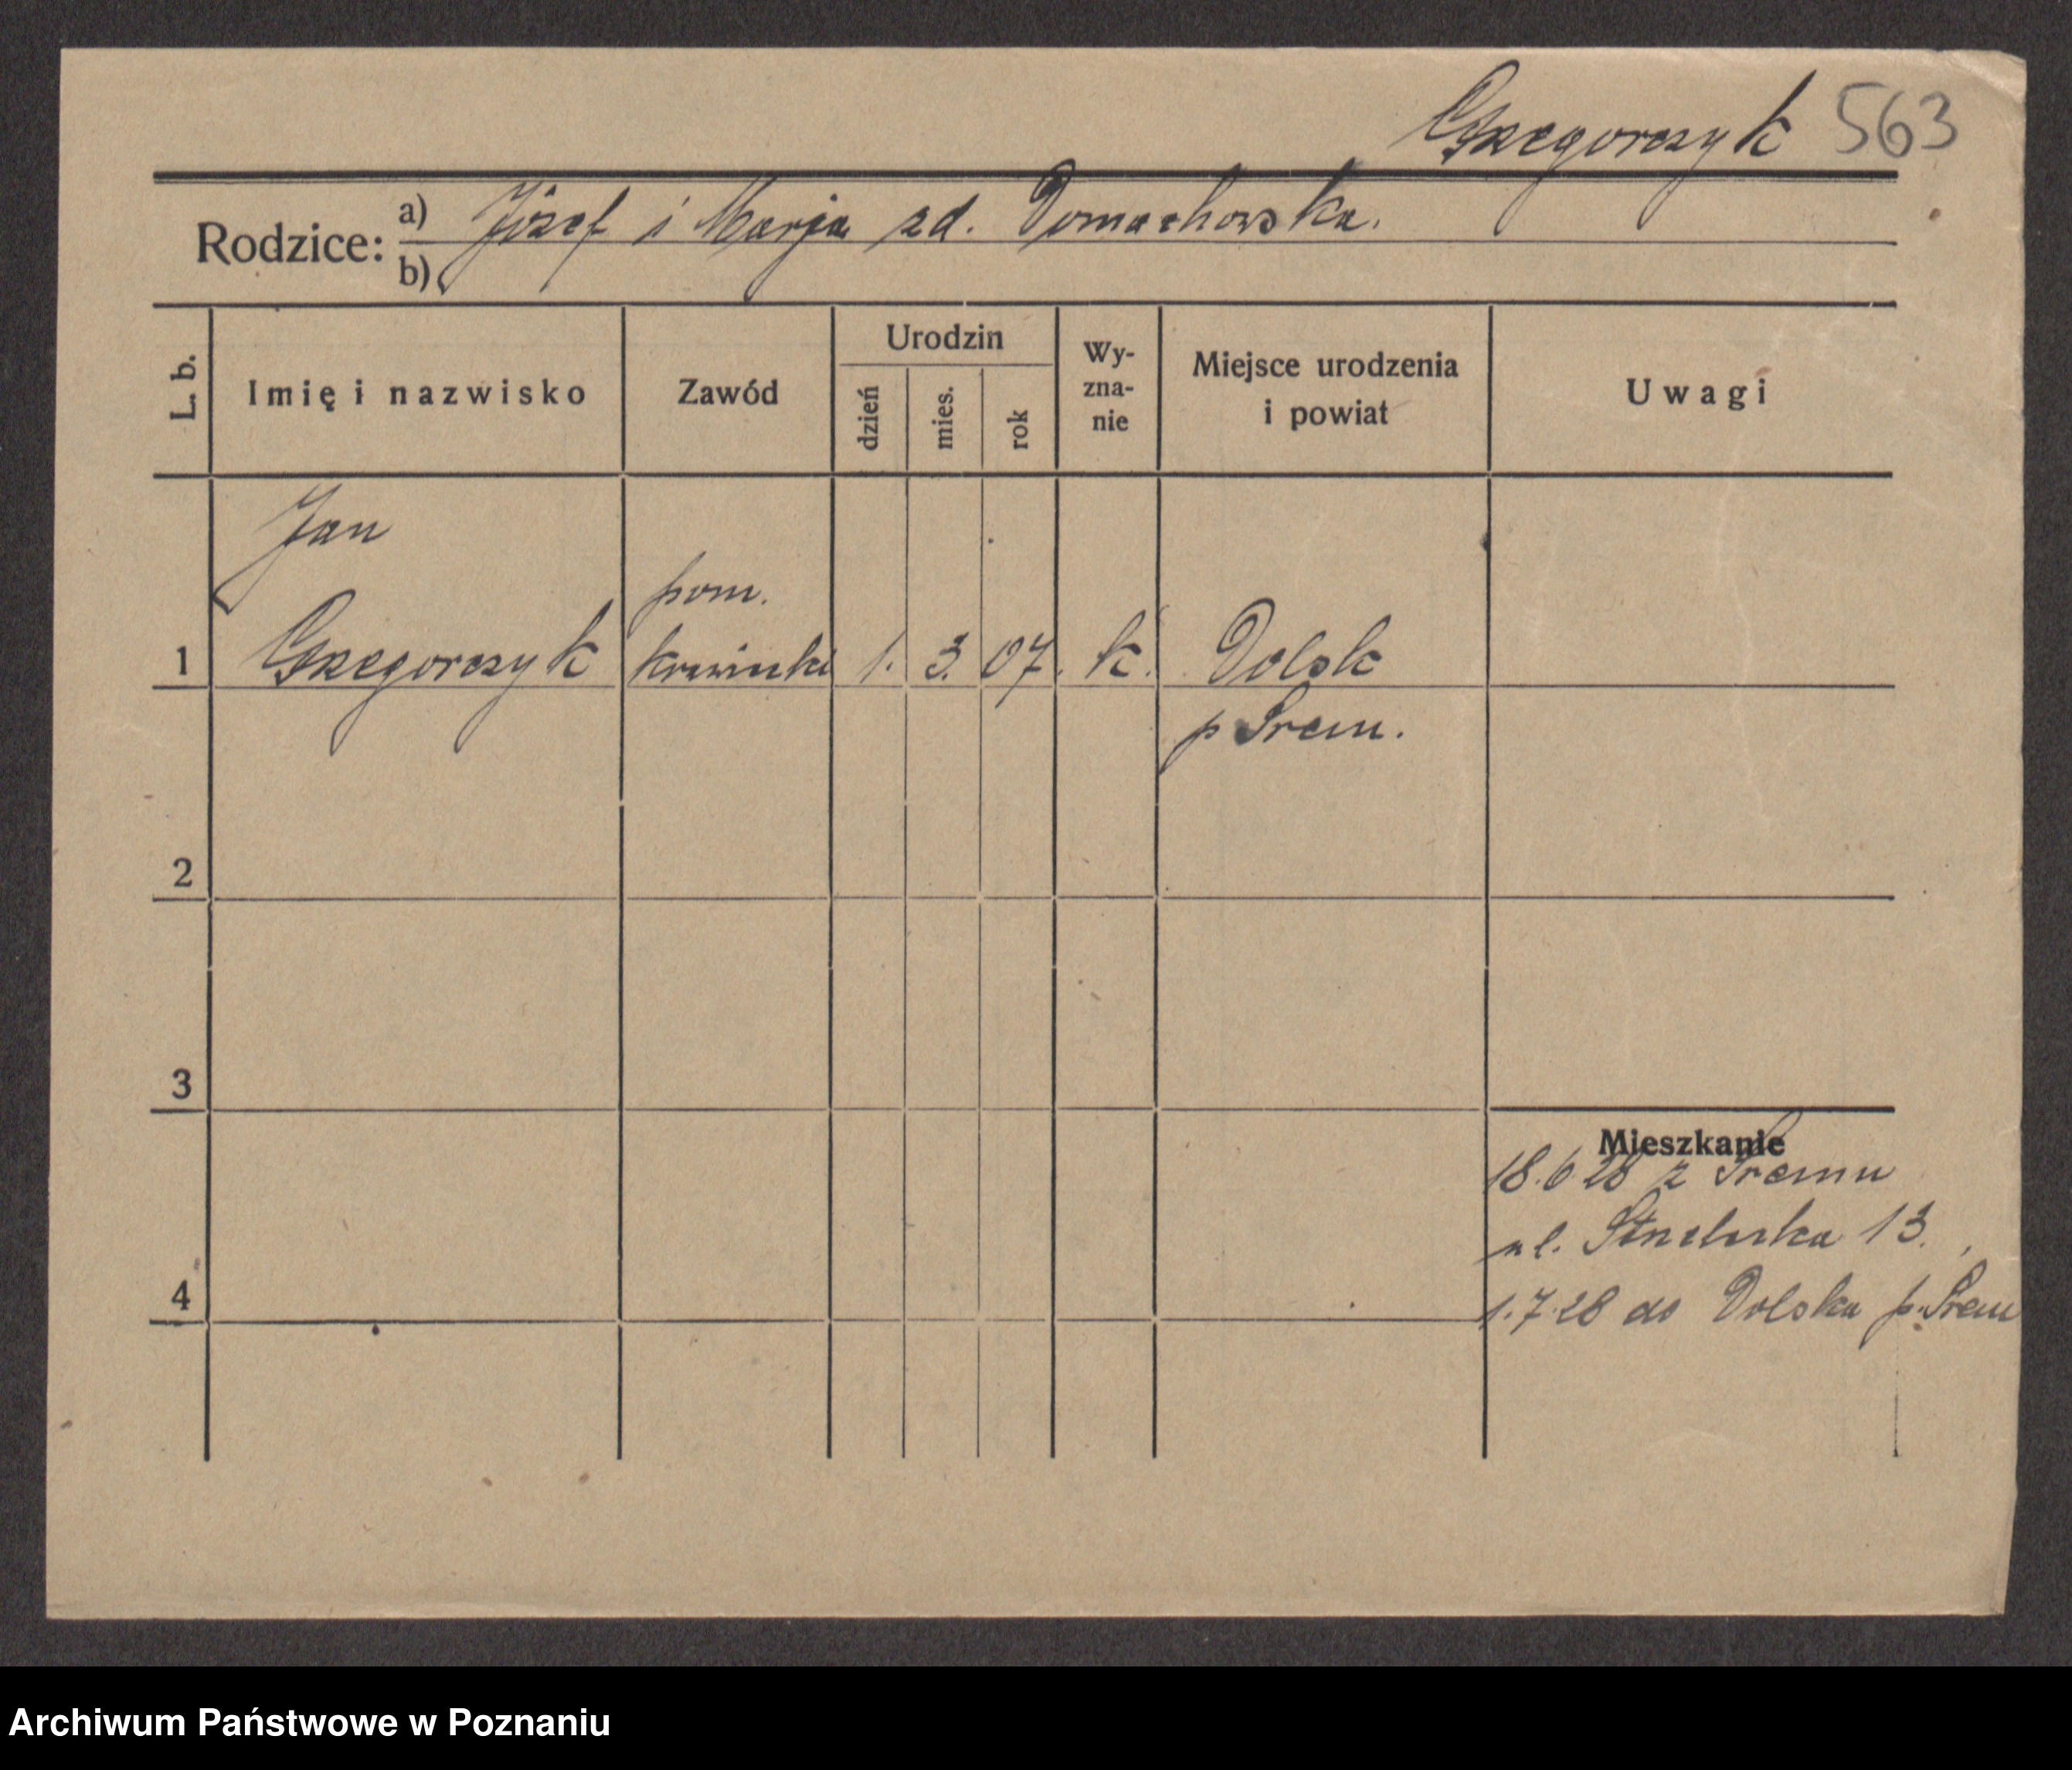 Grzegorczyk 563
Rodzice: a) Józef i Marja zd. Domachowska.
b)
L. b.
Imię i nazwisko
Zawód
Urodzin
dzień
mies.
rok
Wy-
zna-
nie
Miejsce urodzenia
i powiat
Uwagi
Jan
pom.
1 Grzegorczyk krawiecki 1. 3. 07. k. Dolsk
p Śrem.
2
3
Mieszkanie
18.6.28 z Śremu
ul. Strzelecka 13.
4 1.7.28 do Dolska p. Śrem
Archiwum Państwowe w Poznaniu